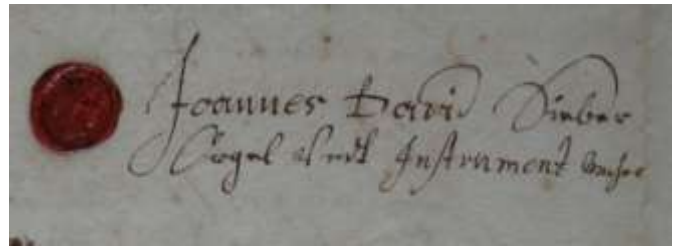 Joannes David Sieber
Orgel undt Instrument Macher